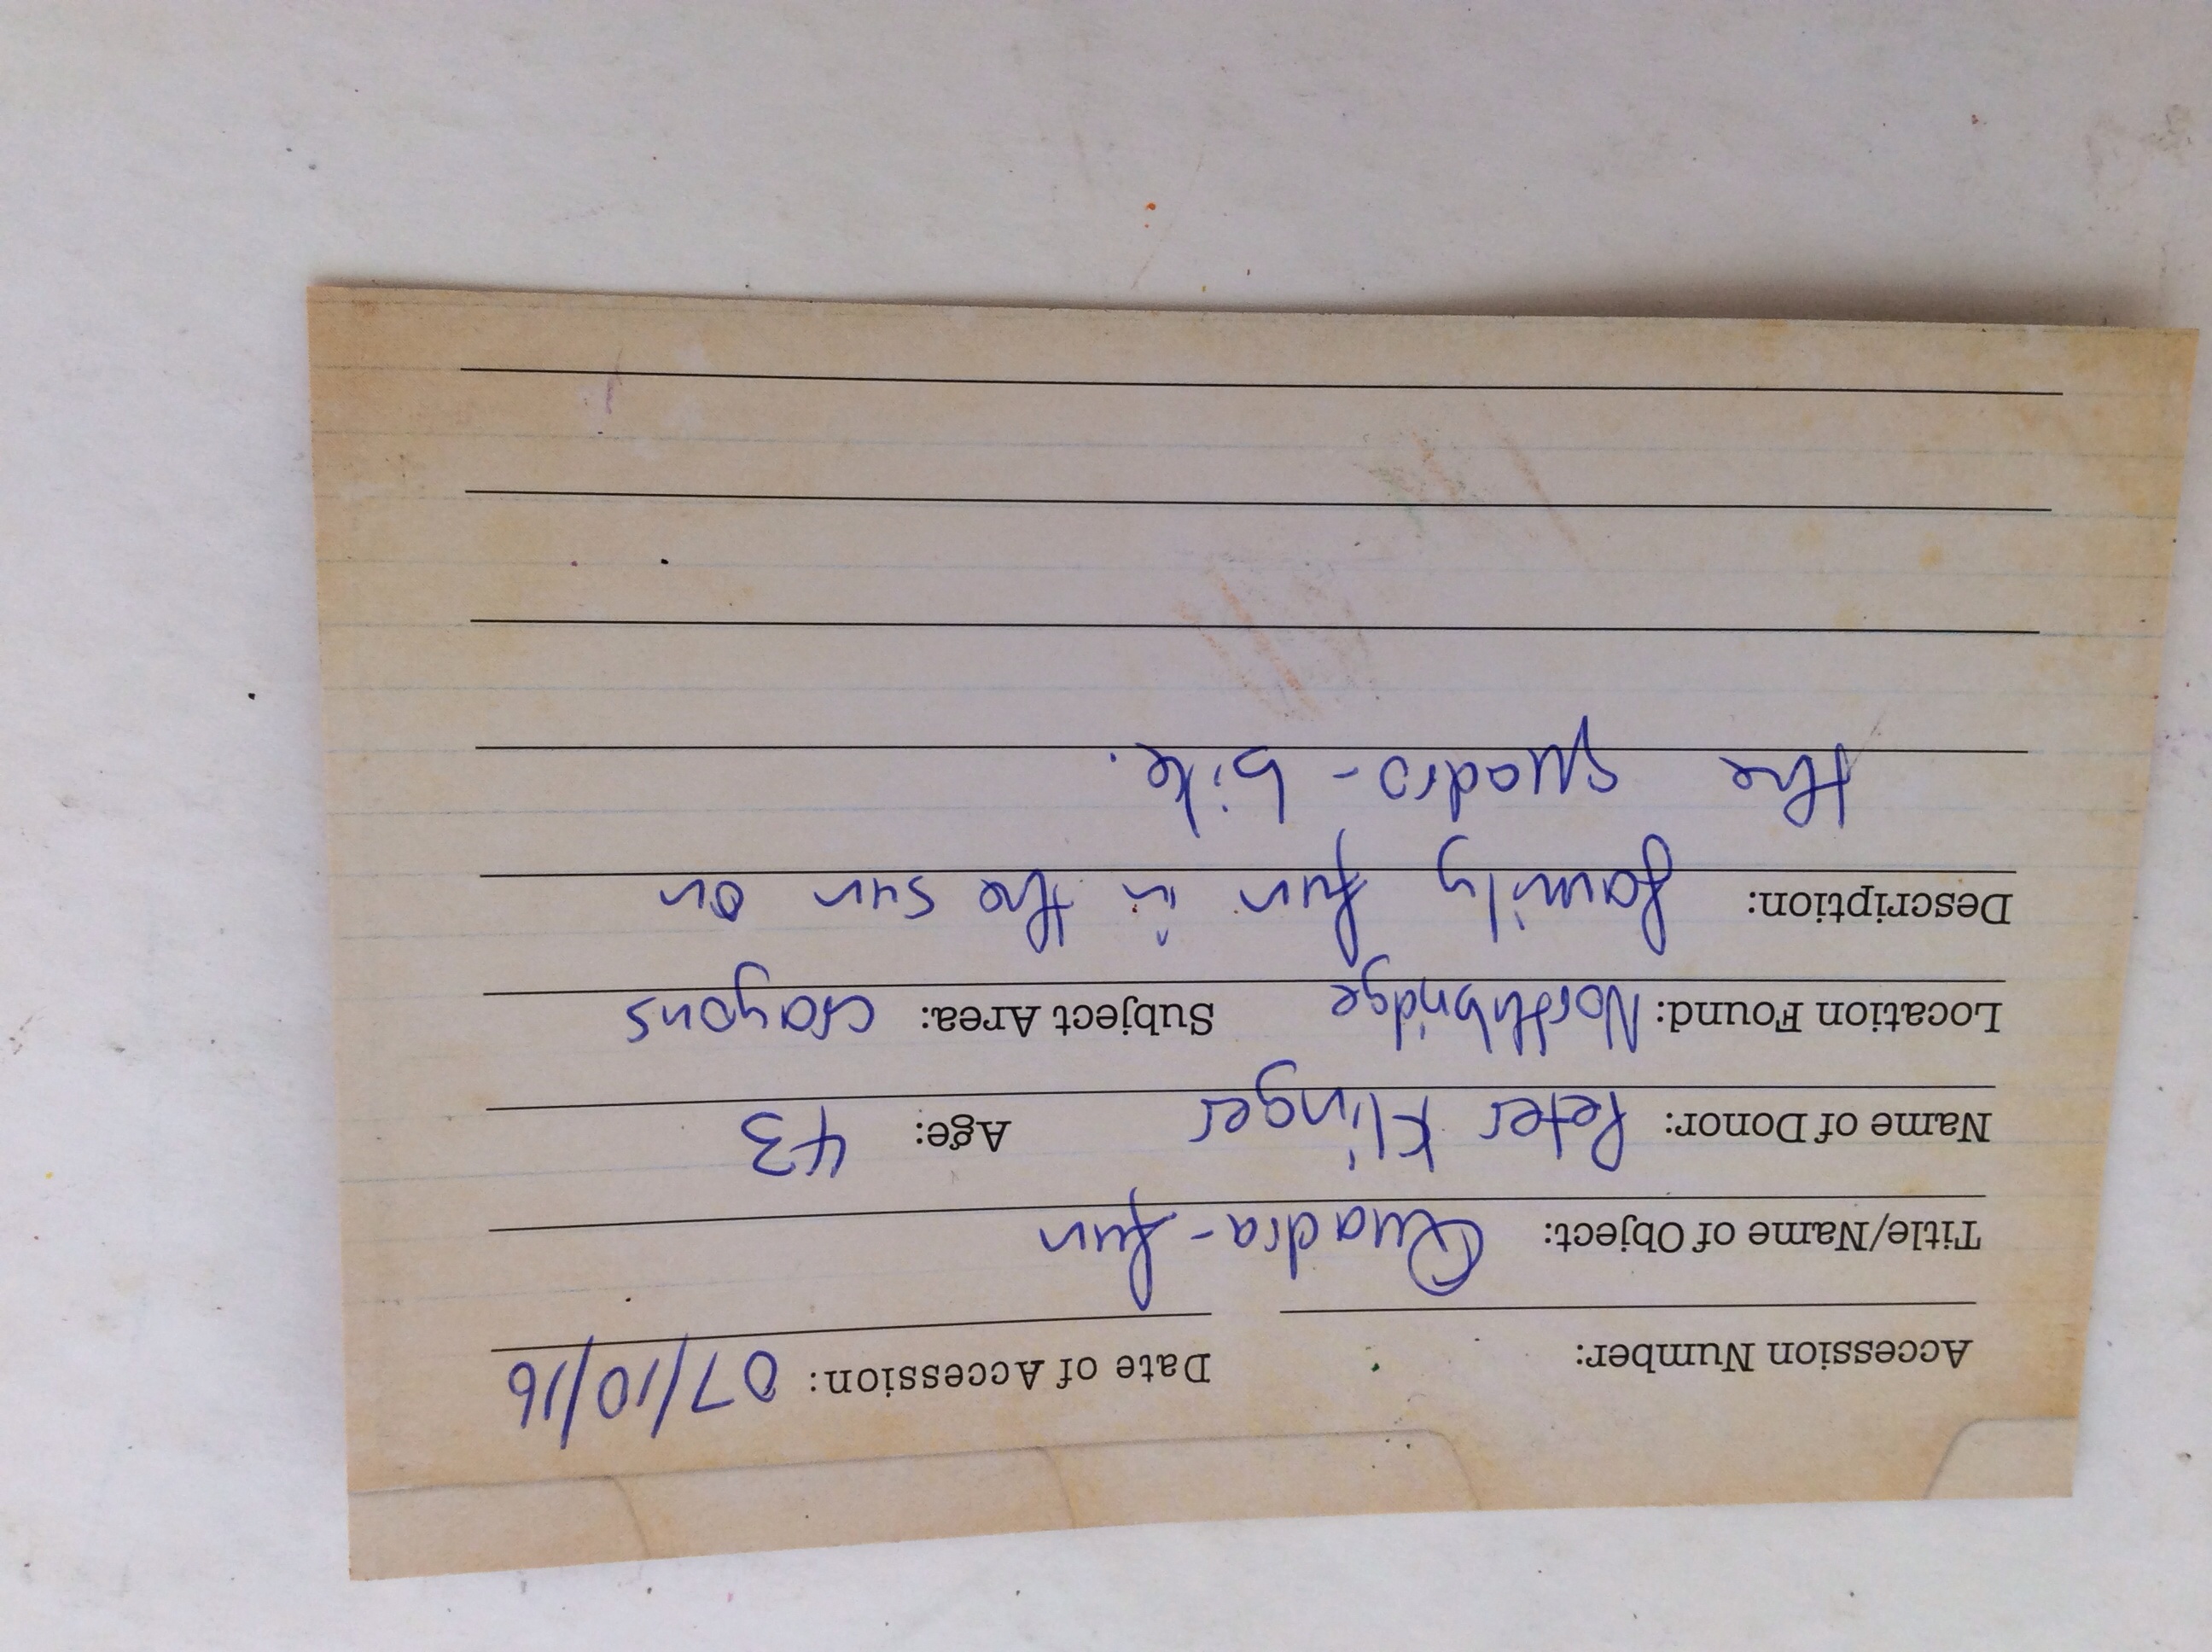 Accession Number: Date of Accession: 07/10/16
Title/Name of Object: Quadra-fun
Name of Donor: Peter Klinger Age: 43
Location Found: Northbridge Subject Area: crayons
Description: family fun in the sun on
the quadro-bike.